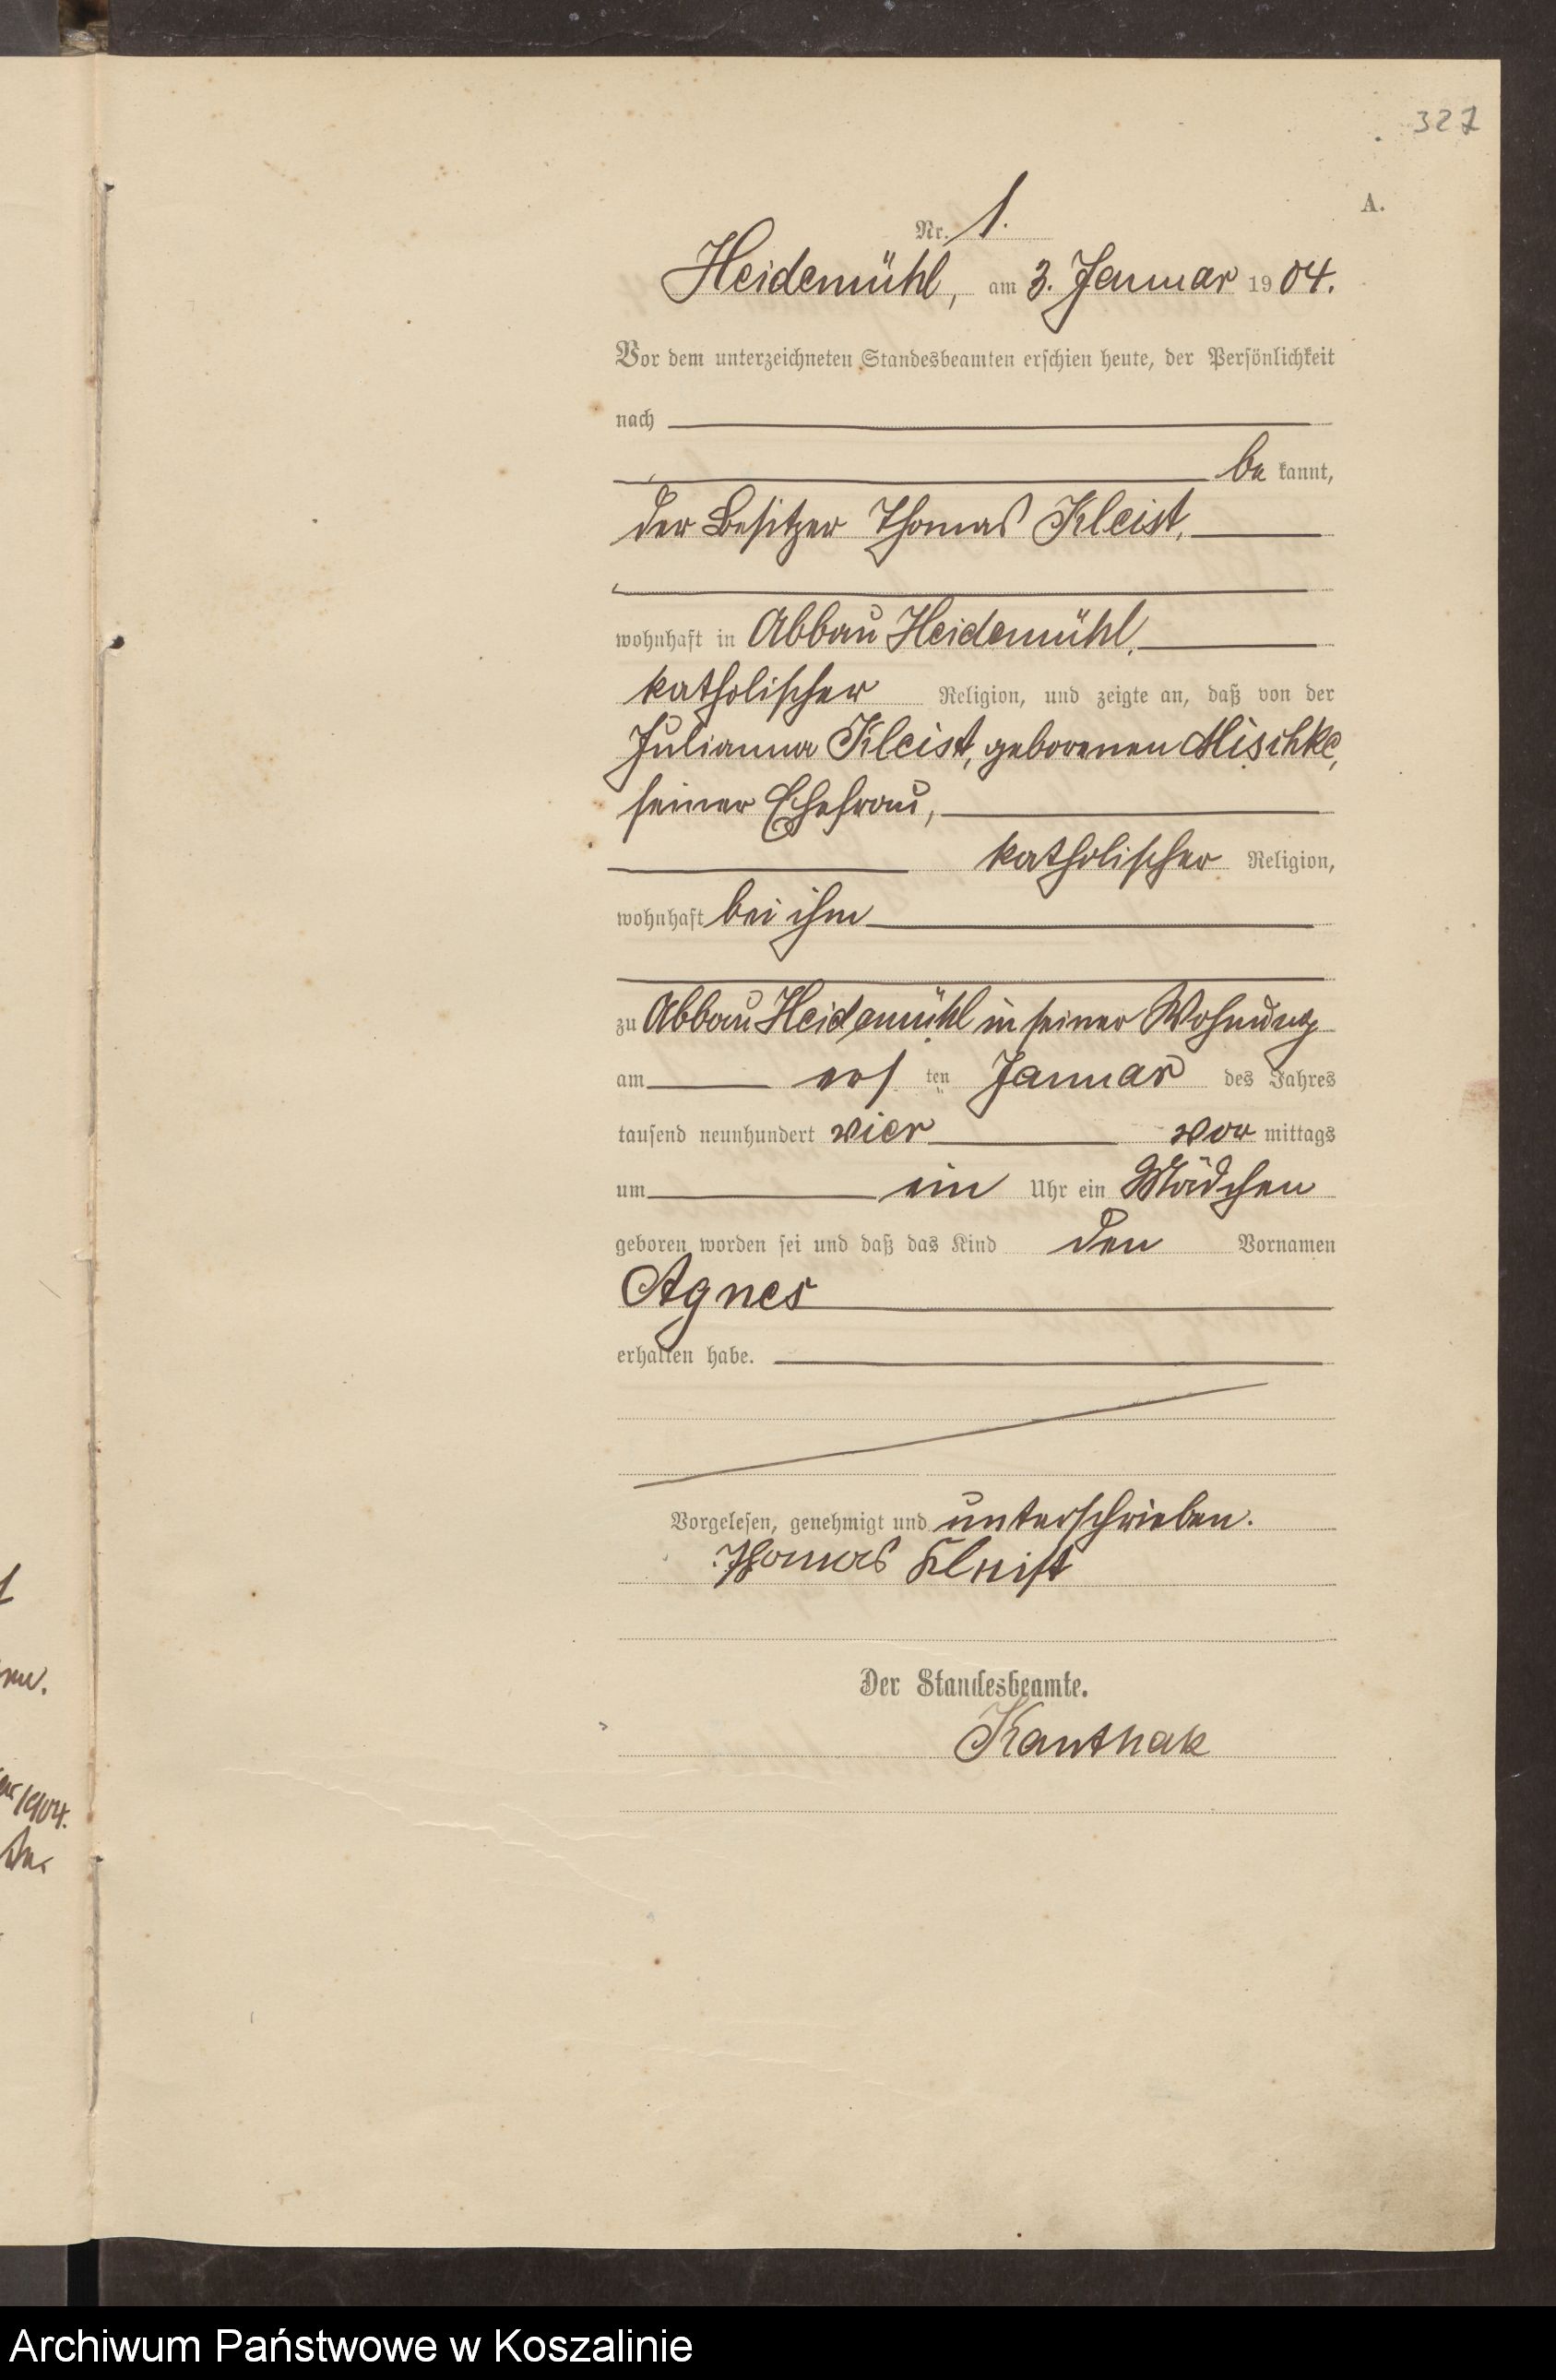 327
A.
Nr. 1.
Heidemühl, am 3. Januar 1904.
Vor dem unterzeichneten Standesbeamten erschien heute, der Persönlichkeit
nach
be kannt,
der Besitzer Thomas Kleist,
wohnhaft in Abbau Heidemühl,
katholischer Religion, und zeigte an, daß von der
Julianna Kleist, geborenen Mischke,
seiner Ehefrau,
katholischer Religion,
wohnhaft bei ihm
zu Abbau Heidemühl in seiner Wohnung
am ers ten Januar des Jahres
tausend neunhundert vier vor mittags
um ein Uhr ein Mädchen
geboren worden sei und daß das Kind den Vornamen
Agnes
erhalten habe.
Vorgelesen, genehmigt und unterschrieben.
Thomas Kleist
Der Standesbeamte.
Kanthak
1904.
Archiwum Państwowe w Koszalinie